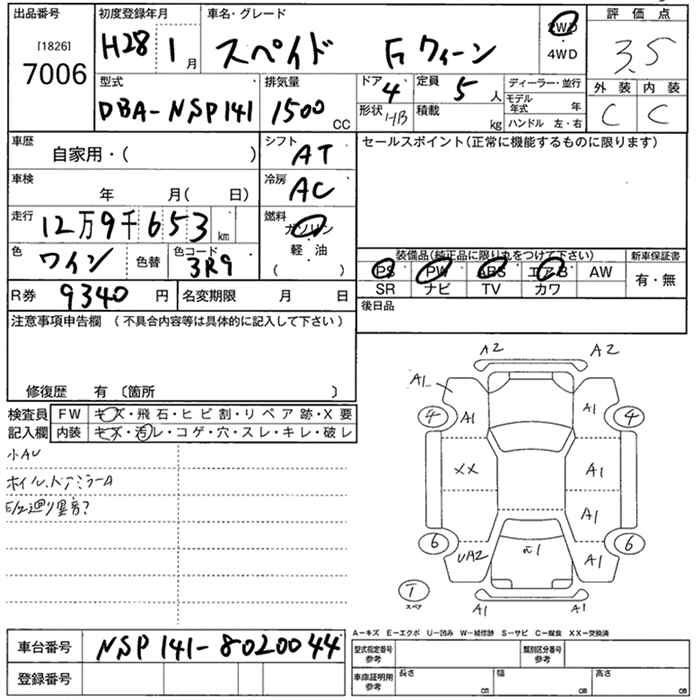 出品番号
[1826]
7006
初度登録年月
H28 1 月
車名・グレード
スペイド Gクィーン
2WD
・
4WD
評価点
3.5
外装 内装
C C
型式
DBA-NSP141
排気量
1500 CC
ドア 4
形状 HB
定員 5 人
積載 kg
ディーラー・並行
モデル年式 年
ハンドル 左・右
車歴
自家用・( )
シフト
AT
車検
年 月( 日)
冷房
AC
走行
12万9千653 km
燃料
ガソリン
・
軽・油
( )
色
ワイン
色替
色コード
3R9
R券 9340 円
名変期限 月 日
セールスポイント(正常に機能するものに限ります)
装備品(純正品に限り丸をつけて下さい)
PS PW ABS エアB AW
SR ナビ TV カワ
新車保証書
有・無
後日品
注意事項申告欄 (不具合内容等は具体的に記入して下さい)
修復歴 有 〔箇所 〕
検査員
記入欄
FW キズ・飛石・ヒビ割・リペア跡・X要
内装 キズ・汚レ・コゲ・穴・スレ・キレ・破レ
小AU
ホイル、ドアミラーA
A2 A2
A1 A1
4 A1 4
XX A1
A1
6 UA2 A1 A1 6
T
スペア
A1 A1
A-キズ E-エクボ U-凹み W-補修跡 S-サビ C-腐食 XX-交換済
車台番号 NSP141-8020044
登録番号
型式指定番号
参考
類別区分番号
参考
車庫証明用
参考
長さ cm
幅 cm
高さ cm